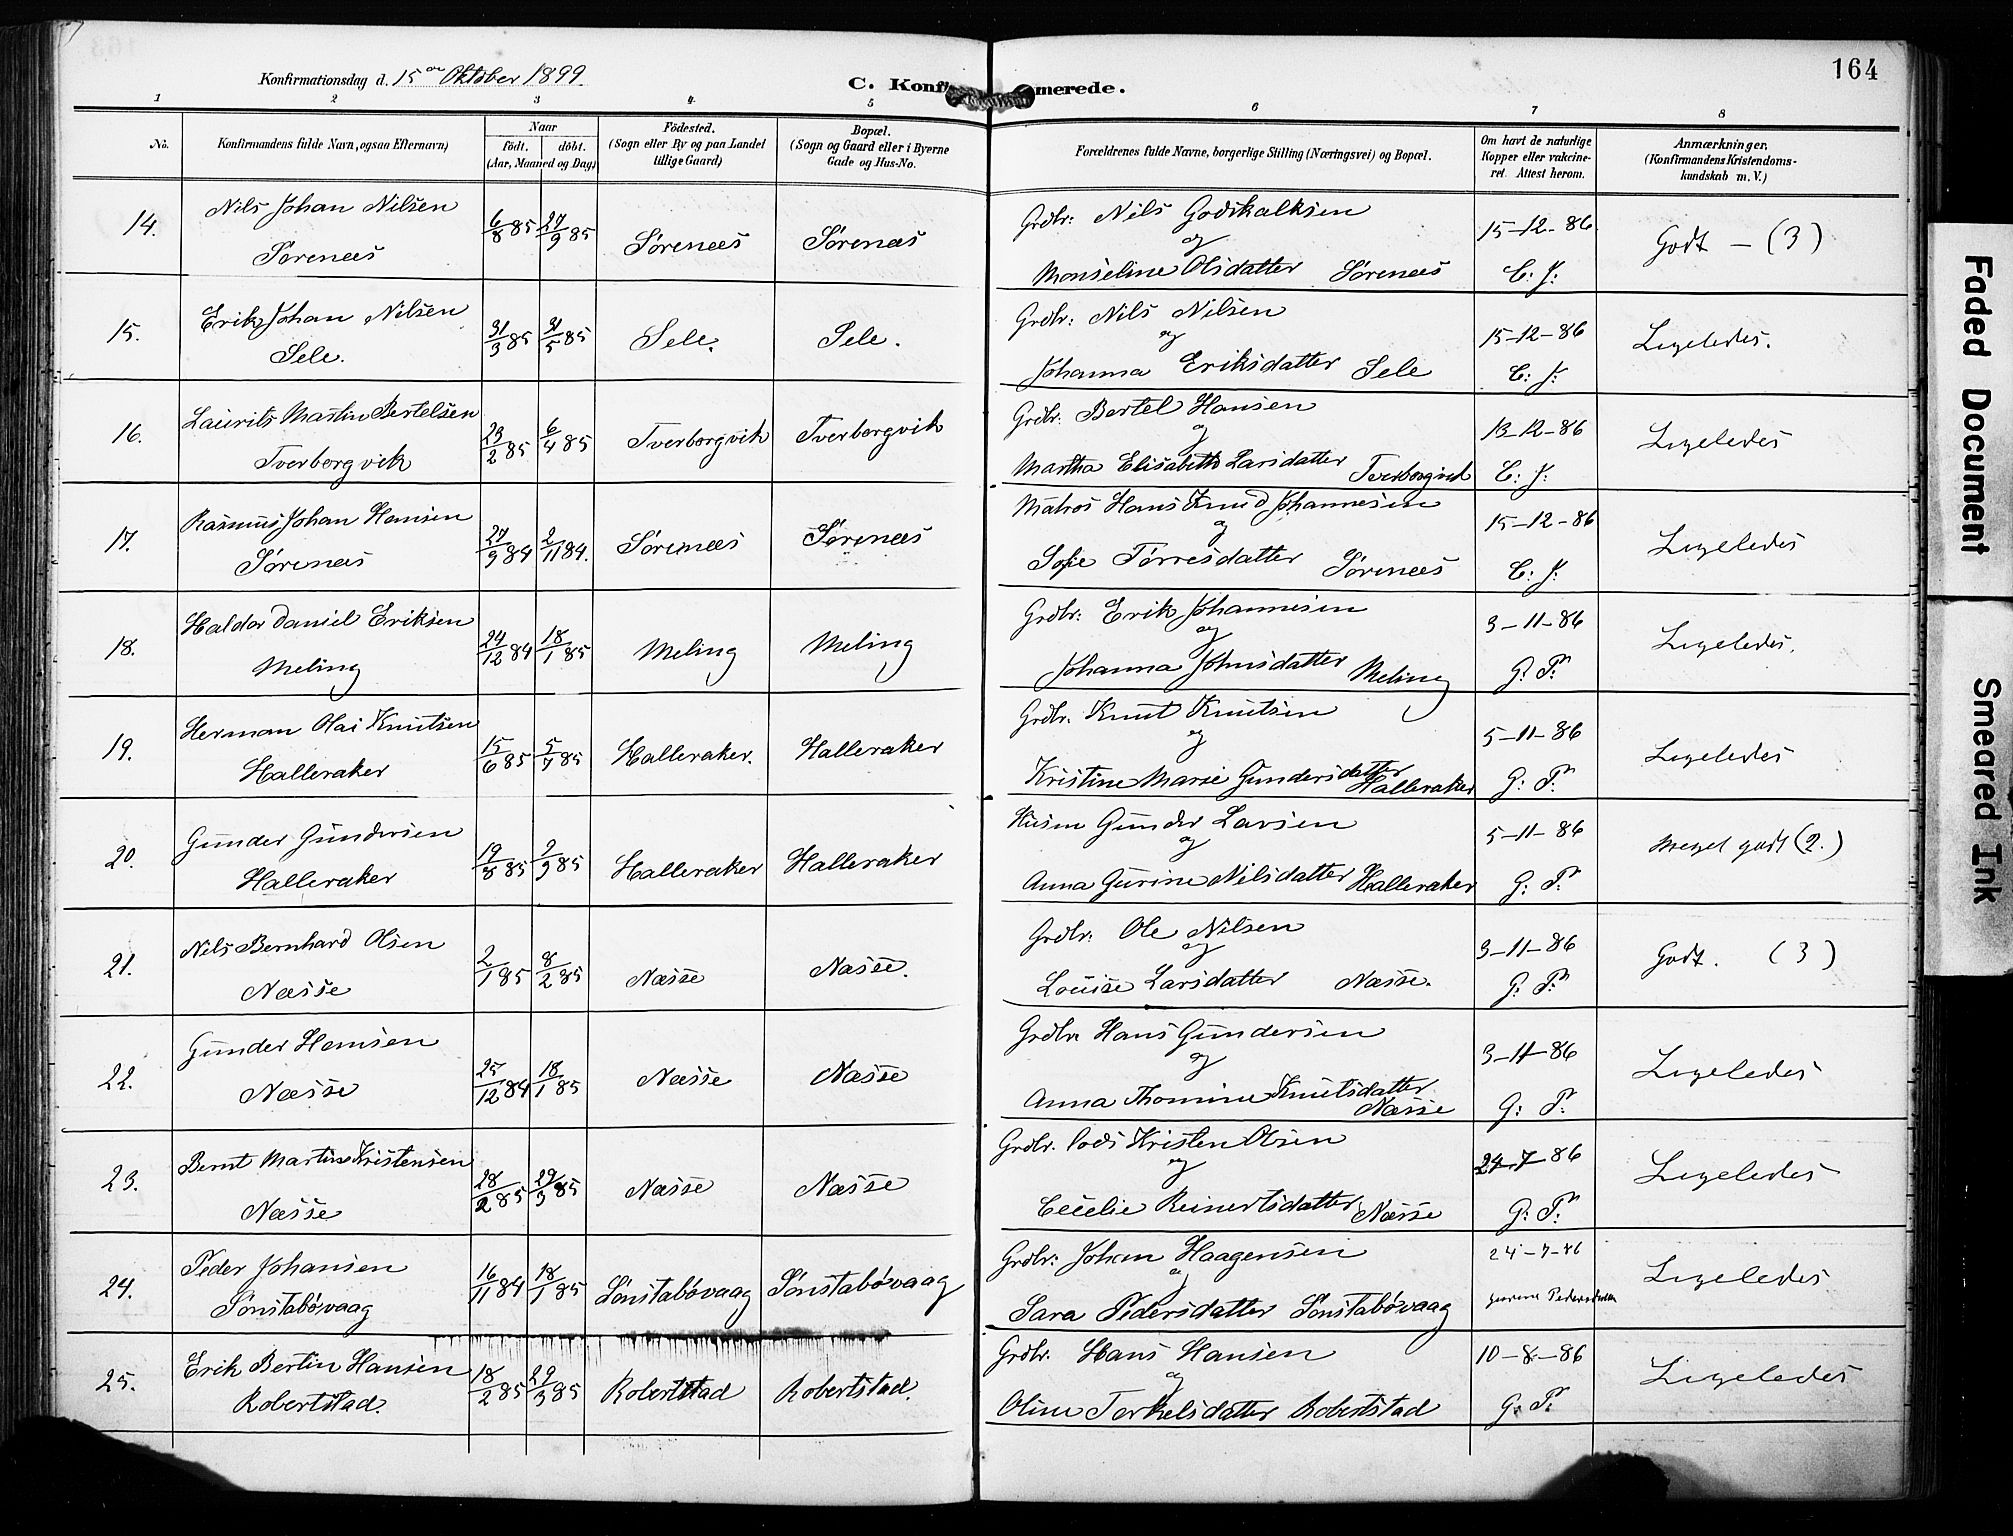 164
Konfirmationsdag d. 15de Oktober 1899.
C. Konfirmerede.
1 2 3 4. 5 6 7 8
No. Konfirmandens fulde Navn, ogsaa Efternavn) Naar födt. döbt. (Aar, Maaned og Dag) Födested. (Sogn eller By og paa Landet tillige Gaard) Bopæl. (Sogn og Gaard eller i Byerne Gade og Hus-No. Forældrenes fulde Navne, borgerlige Stilling (Næringsvei) og Bopæl. Om havt de naturlige Kopper eller vakcineret. Attest herom. Anmærkninger. (Konfirmandens Kristendomskundskab m. V.)
14. Nils Johan Nilsen Sørenæs 6/8 85 27/9 85 Sørenæs Sørenæs Grdbr: Nils Godskalksen og Monseline Olsdatter Sørenæs 15-12-86 C. J. Godt - (3)
15. Erik Johan Nilsen Sele. 31/3 85 31/5 85 Sele. Sele. Grdbr: Nils Nilsen og Johanna Eriksdatter Sele 15-12-86 C: J: Ligeledes.
16. Laurits Martin Bertelsen Tverborgvik 23/2 85 6/4 85 Tverborgvik Tverborgvik Grdbr: Bertel Hansen og Martha Elisabeth Larsdatter Tverborgvik 13-12-86 C: J: Ligeledes
17. Rasmus Johan Hansen Sørenæs 27/9 84 2/11 84. Sørenæs Sørenæs Matros Hans Knud Johannesen og Sofie Tørresdatter Sørenæs 15-12-86 C: J: Ligeledes
18. Haldor Daniel Eriksen Meling 24/12 84 18/1 85 Meling Meling Grdbr: Erik Johannesen og Johanna Johnsdatter Meling 3-11-86 G. P. Ligeledes.
19. Herman Olai Knutsen Halleraker 15/6 85 5/7 85 Halleraker. Halleraker Grdbr. Knut Knutsen og Kristine Marie Gundersdatter Halleraker 5-11-86 G: P. Ligeledes
20. Gunder Gundersen Halleraker 19/8 85 2/9 85 Halleraker Halleraker Husm Gunder Larsen og Anna Gurine Nilsdatter Halleraker 5-11-86 G: P. Meget godt (2.)
21. Nils Bernhard Olsen Næsse 2/1 85 8/2 85 Næsse Næsse. Grdbr: Ole Nilsen og Louise Larsdatter Næsse. 3-11-86 G: P. Godt. (3)
22. Gunder Hansen Næsse 25/12 84 18/1 85 Næsse Næsse Grdbr Hans Gundersen og Anna Thomine Knutsdatter Næsse 3-11-86 G: P. Ligeledes
23. Bernt Martin Kristensen Næsse 28/2 85 29/3 85 Næsse Næsse Grdbr. Kristen Olsen og Cecelie Reinertsdatter Næsse 24-7-86 G: P. Ligeledes
24. Peder Johansen Sønstabøvaag 16/11 84 18/1 85 Sønstabøvaag Sønstabøvaag Grdbr: Johan Haagensen og Sara Pedersdatter Sønstabøvaag 24-7-86 Ligeledes
25. Erik Bertin Hansen Robertstad. 18/2 85 29/3 85 Robertstad Robertstad. Grdbr: Hans Hansen og Oline Torkelsdatter Robertstad 10-8-86 G. P. Ligeledes
Faded Document
Smeared Ink